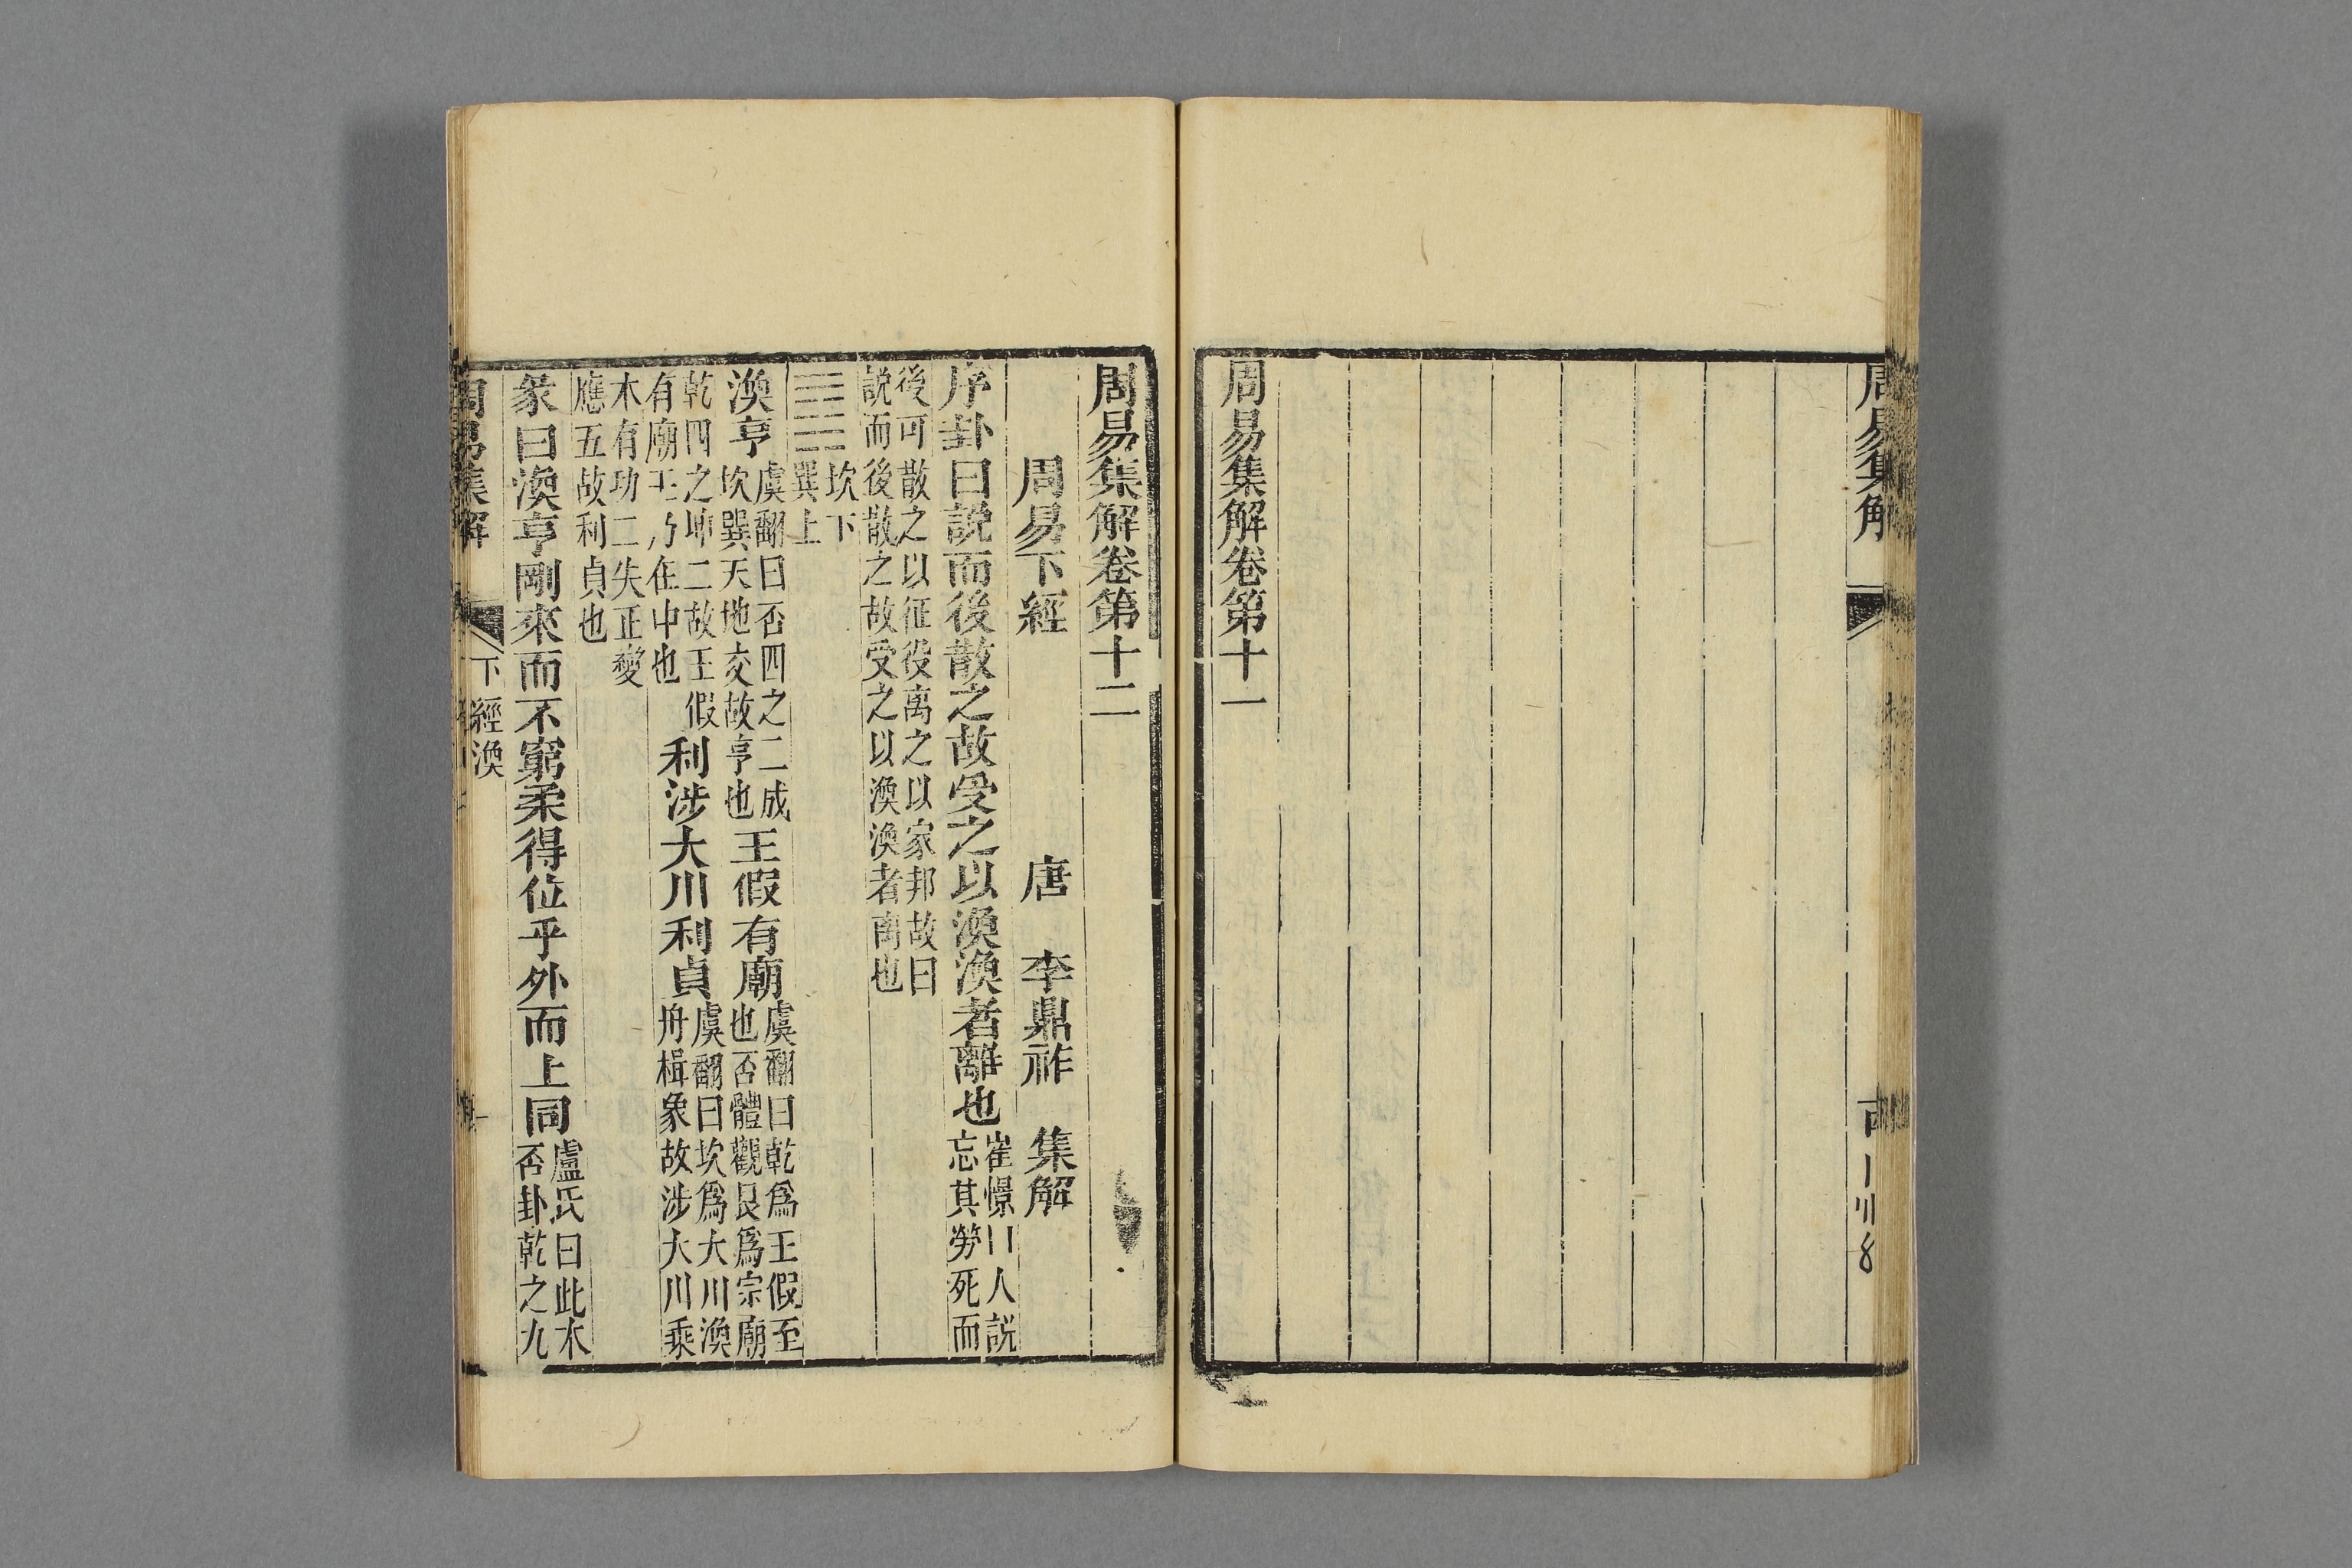 周易集解
周易集解卷第十一
周易集解卷第十二
周易下經 唐 李鼎祚 集解
序卦曰説而後散之故受之以渙渙者離也崔憬曰人説
忘其勞死而
後可散之以征役离之以家邦故曰
説而後散之故受之以渙渙者离也
坎下
巽上
渙亨虞翻曰否四之二成
坎巽天地交故亨也王假有廟虞翻曰乾爲王假至
也否體觀艮爲宗廟
乾四之坤二故王假
有廟王乃在中也利涉大川利貞虞翻曰坎爲大川渙
舟楫象故涉大川乘
木有功二失正變
應五故利貞也
彖曰渙亨剛來而不窮柔得位乎外而上同盧氏曰此本
否卦乾之九
周易集解 下經渙